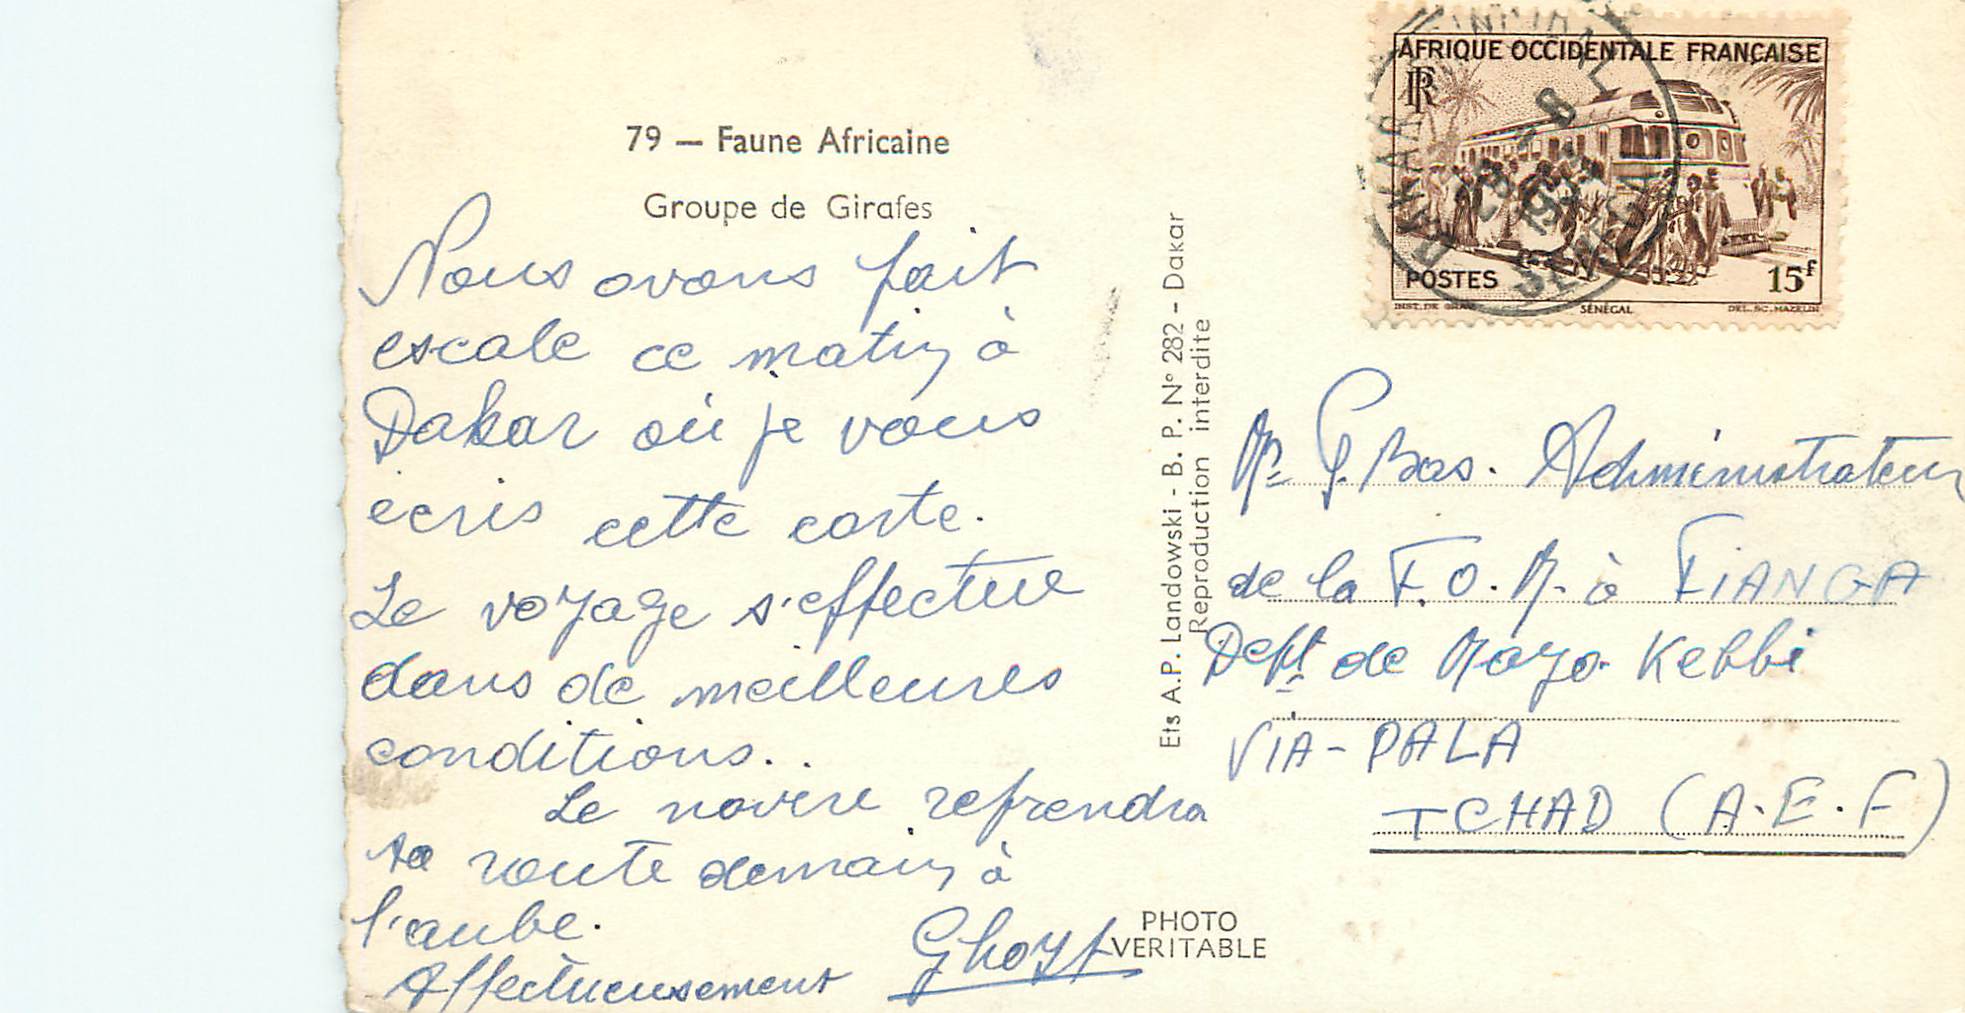 79 — Faune Africaine
Groupe de Girafes
Nous avons fait
escale ce matin à
Dakar où je vous
écris cette carte.
Le voyage s'effectue
dans de meilleures
conditions..
Le navire reprendra
sa route demain à
l'aube.
Affectueusement
Ets A.P. Landowski - B. P. N° 282 - Dakar
Reproduction interdite
PHOTO
VERITABLE
AFRIQUE OCCIDENTALE FRANÇAISE
RF
POSTES 15f
INST. DE GRAV. SÉNÉGAL DEL. SC. MAZELIN
DAKAR SENEGAL
Mr G. Bas. Administrateur
de la F.O.M. à FIANGA
Dept de Mayo Kebbi
VIA-PALA
TCHAD (A.E.F)